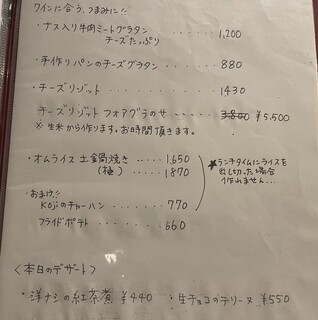 ワインに合う、つまみに!!
・ナス入り牛肉ミートグラタン ‥‥ 1,200
チーズたっぷり
・手作りパンのチーズグラタン ‥‥ 880
・チーズリゾット ‥‥‥ 1430
チーズリゾット フォアグラのせ ‥‥‥ 3,800 ¥5,500
※生米から作ります。お時間頂きます。
・オムライス 土鍋焼き ‥‥‥ 1,650
(極) ‥‥‥ 1870
★ランチタイムにライスを
出し切った場合
作れません…
おまけ!!
・Kojiのチャーハン ‥‥‥ 770
フライドポテト ‥‥‥ 660
<本日のデザート>
・洋ナシの紅茶煮 ¥440 ・生チョコのテリーヌ ¥550